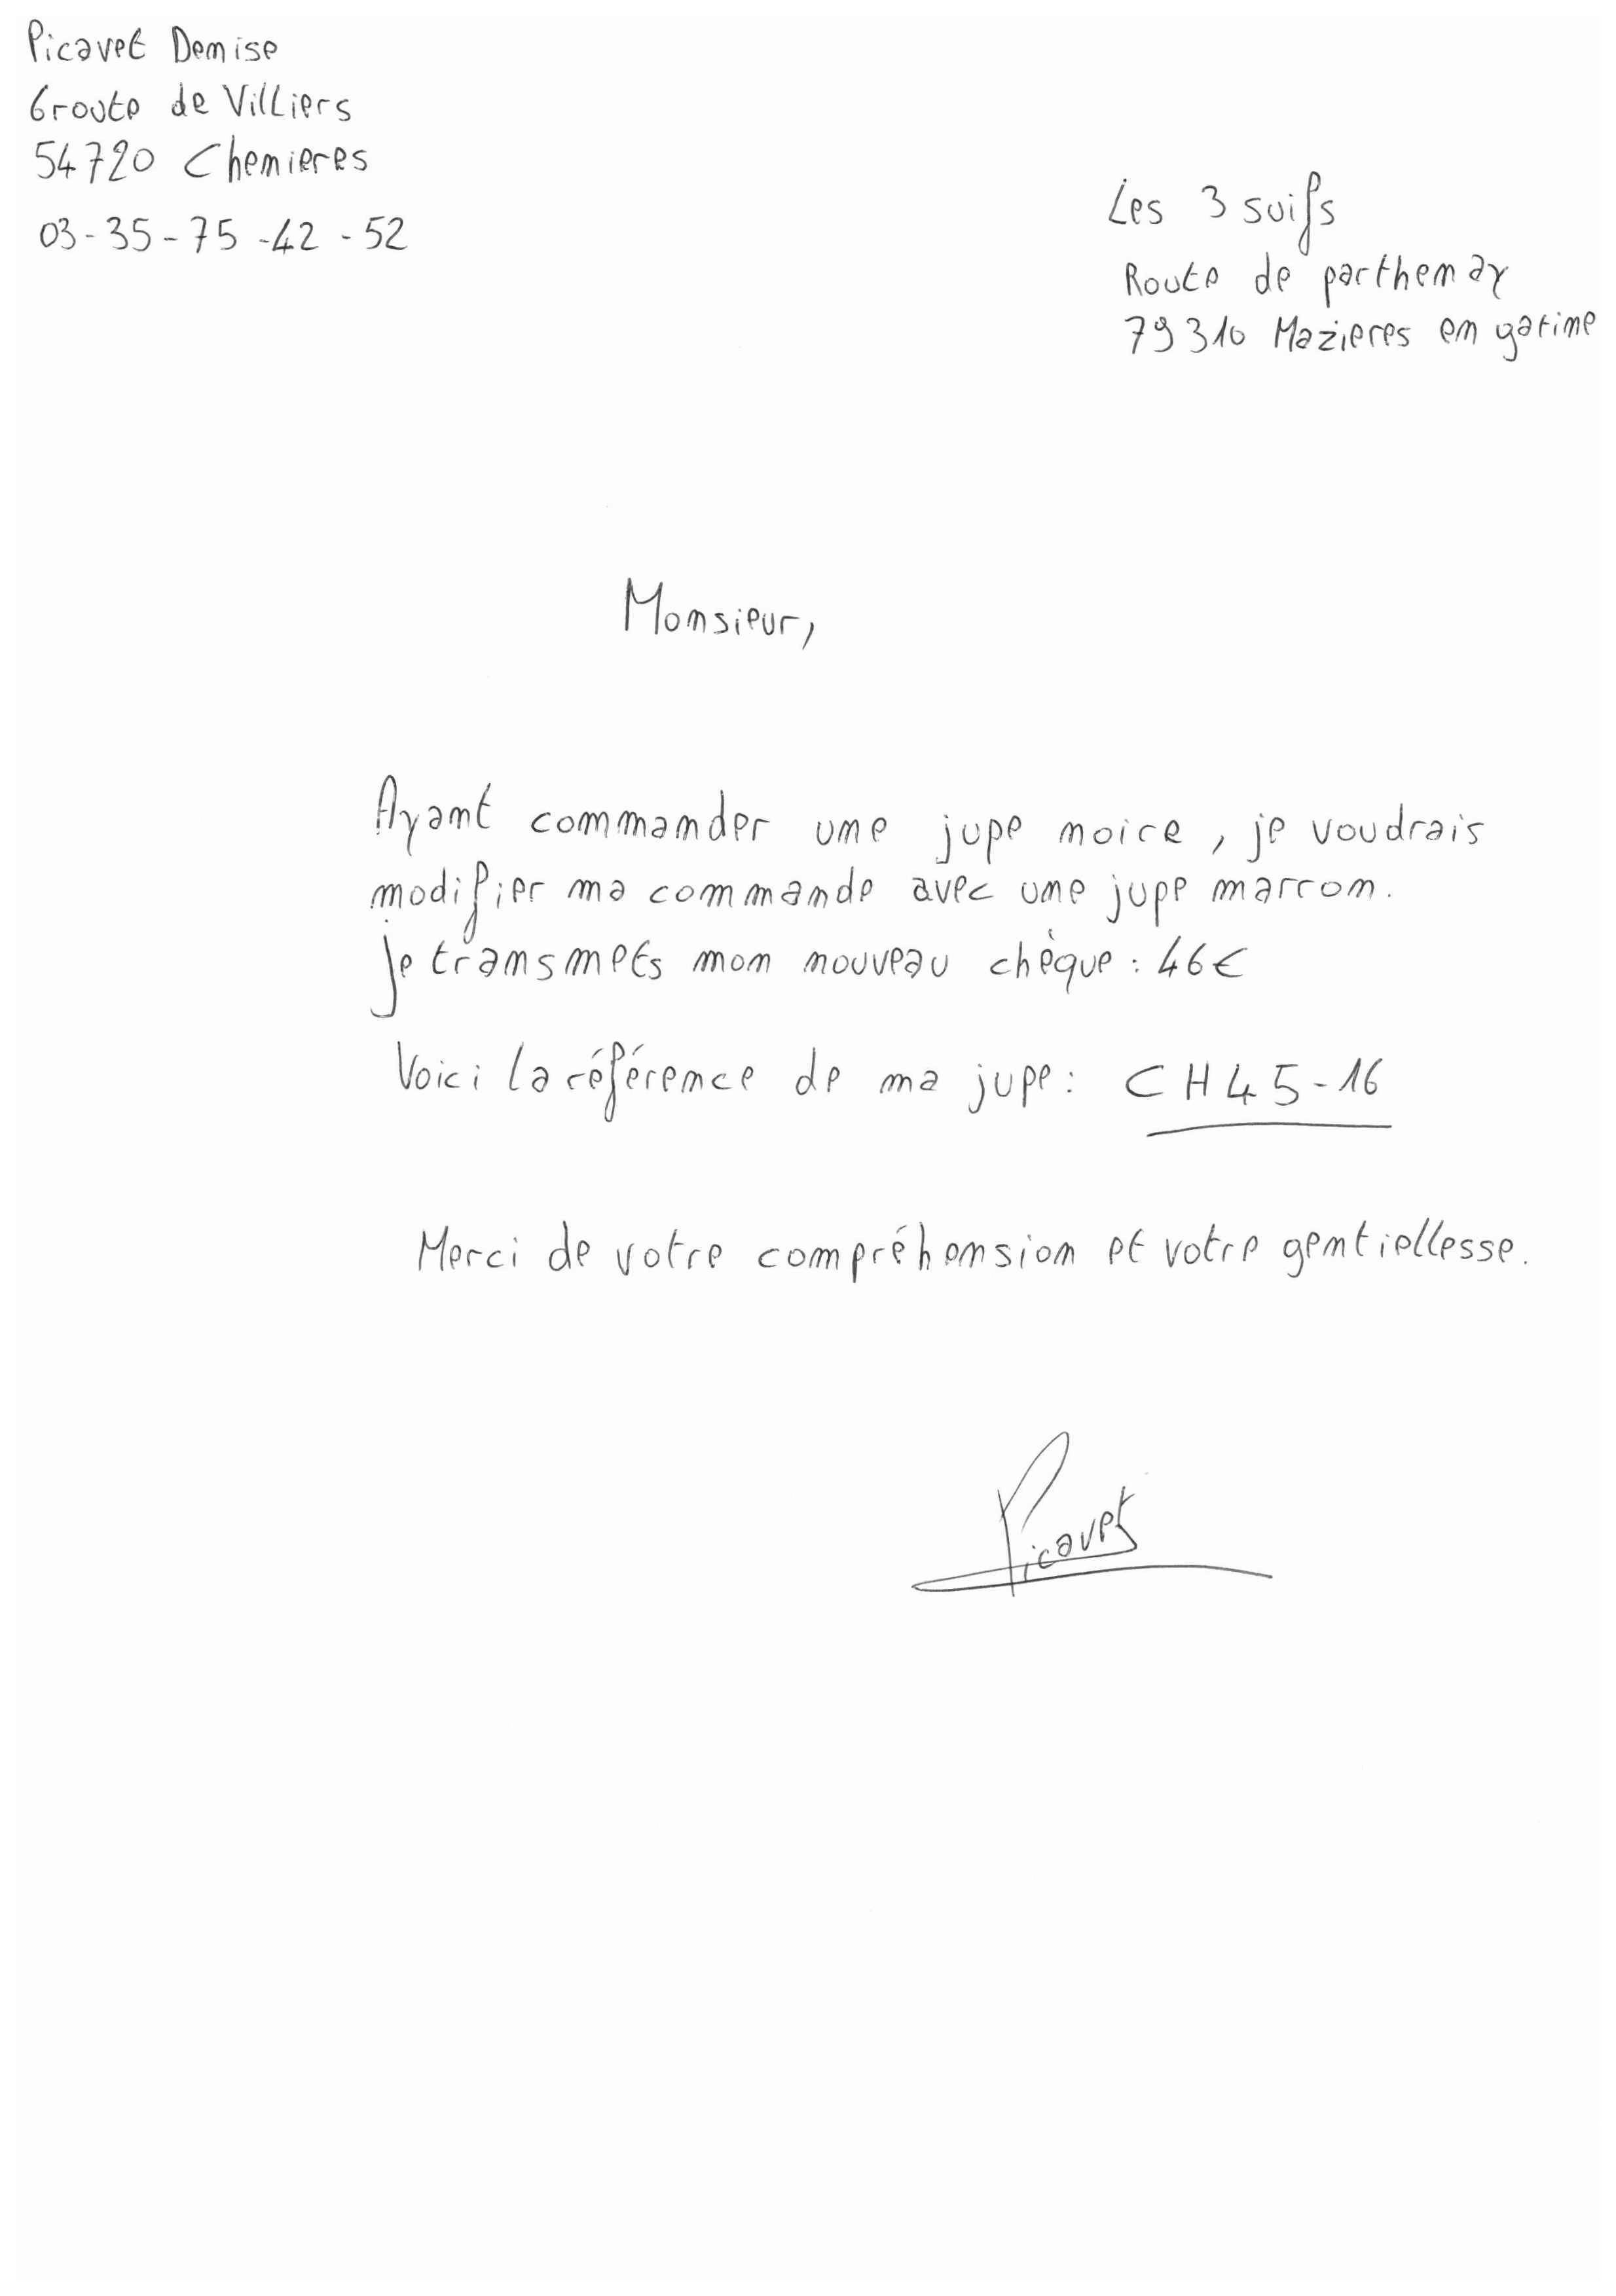 Picavet Denise
6 route de Villiers
54720 Chenieres
03-35-75-42-52
Les 3 suifs
Route de parthenay
79310 Mazieres en gatine
Monsieur,
Ayant commander une jupe noire, je voudrais
modifier ma commande avec une jupe marron.
je transmets mon nouveau chèque : 46€
Voici la référence de ma jupe : CH45-16
Merci de votre compréhension et votre gentiellesse.
Picavet